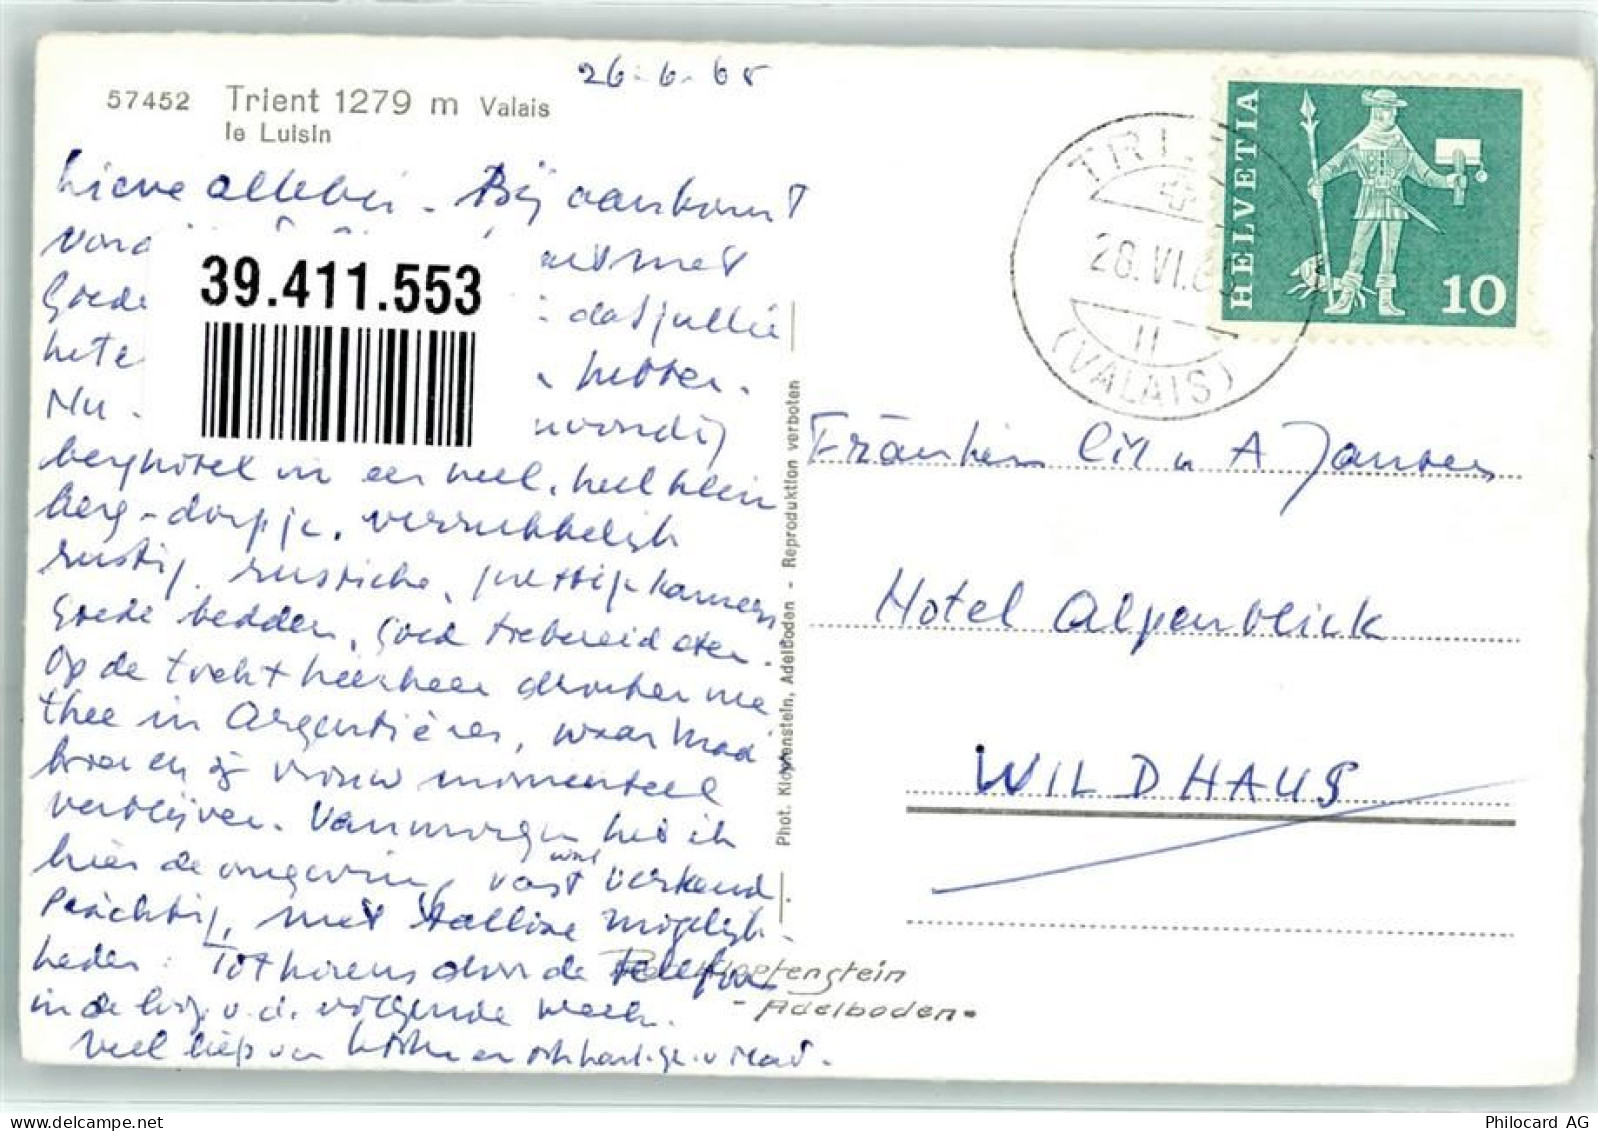 26-6-65
57452 Trient 1279 m Valais
le Luisin
Lieve allebei. Bij aankomst
vond
met
Goede dat jullie
het
Nu
berghotel in een heel, heel klein
berg-dorpje, verrukkelijk
rustig, rustieke, prettige kamers
goede bedden, goed toebereid eten.
Op de tocht hierheen dronken we
thee in Argentières, waar Mad
broer en zijn vrouw momenteel
verblijven. Vanmorgen heb ik
hier de omgeving vast wat verkend
Prachtig, met talloze mogelijk-
heden. Tot horens door de telefoon
in de loop v.d. volgende week.
Veel liefs van
39.411.553
Phot. Klopfenstein, Adelboden - Reproduktion verboten
Klopfenstein
-Adelboden-
HELVETIA
10
TRI
28.VI.65
11
(VALAIS)
Fräulein Lil u A Jansen
Hotel Alpenblick
WILDHAUS
Philocard AG